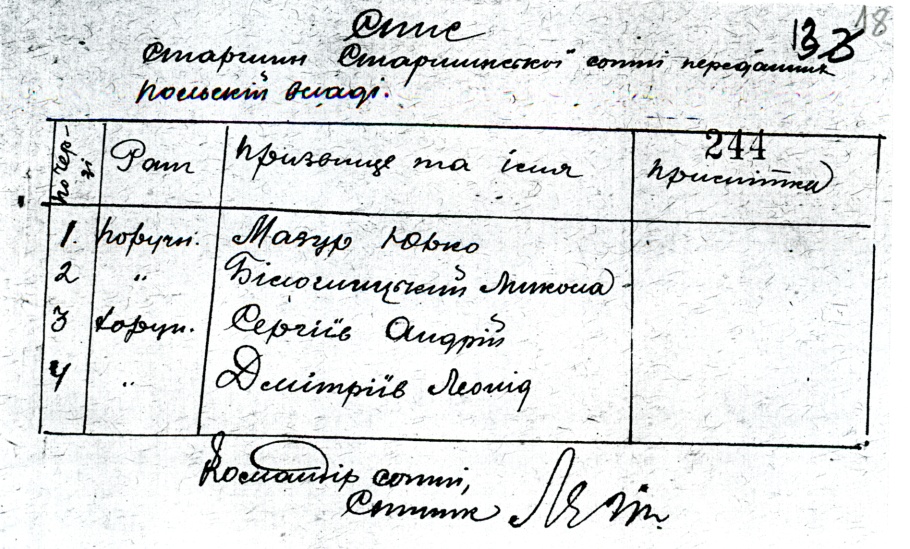 18
Спис
Старшин Старшинської сотні переданих
польскій владі.
244
по чер-
зі Ранг Призвище та імя примітка
1. поруч. Мазур Юрко
2 " Білошицький Микола
3 хорун. Сергіїв Андрій
4 " Дмітріїв Леонід
Командір сотні,
Сотник